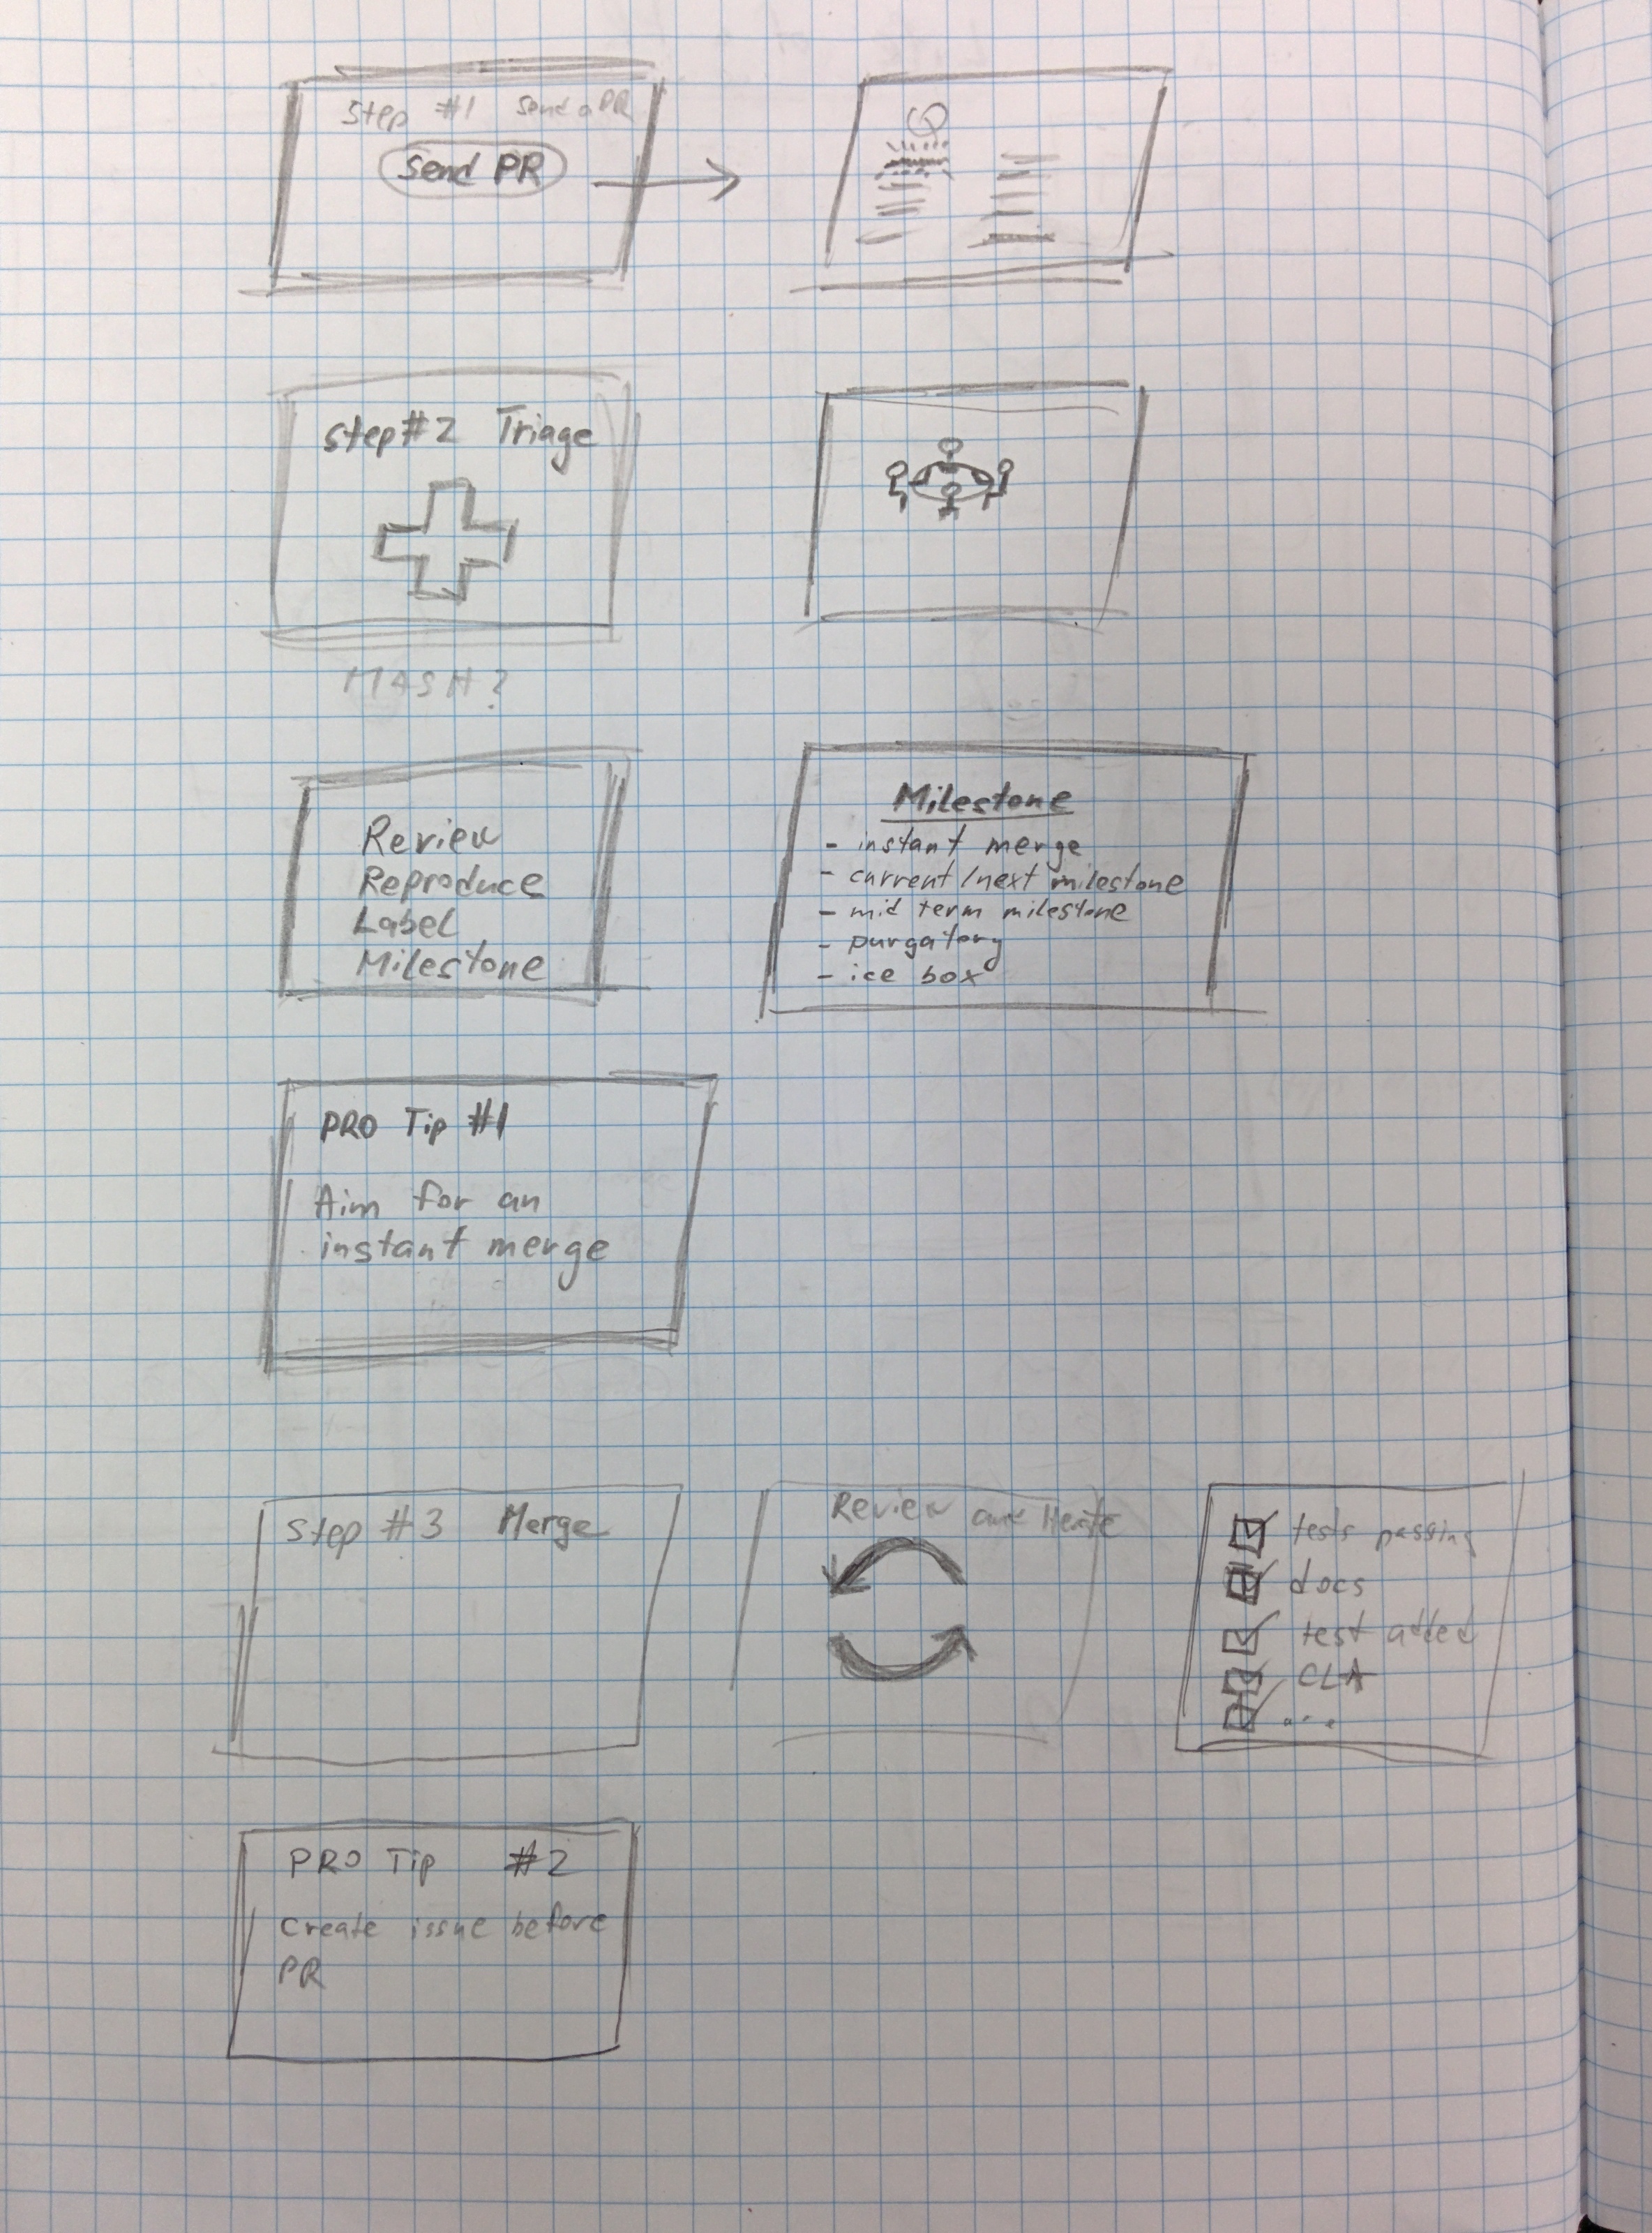 Step #1 Send a PR
Send PR
Step #2 Triage
MASH?
Review
Reproduce
Label
Milestone
Milestone
- instant merge
- current/next milestone
- mid term milestone
- purgatory
- ice box
PRO Tip #1
Aim for an
instant merge
Step #3 Merge
Review and
tests passing
docs
test added
CLA
...
PRO Tip #2
Create issue before
PR